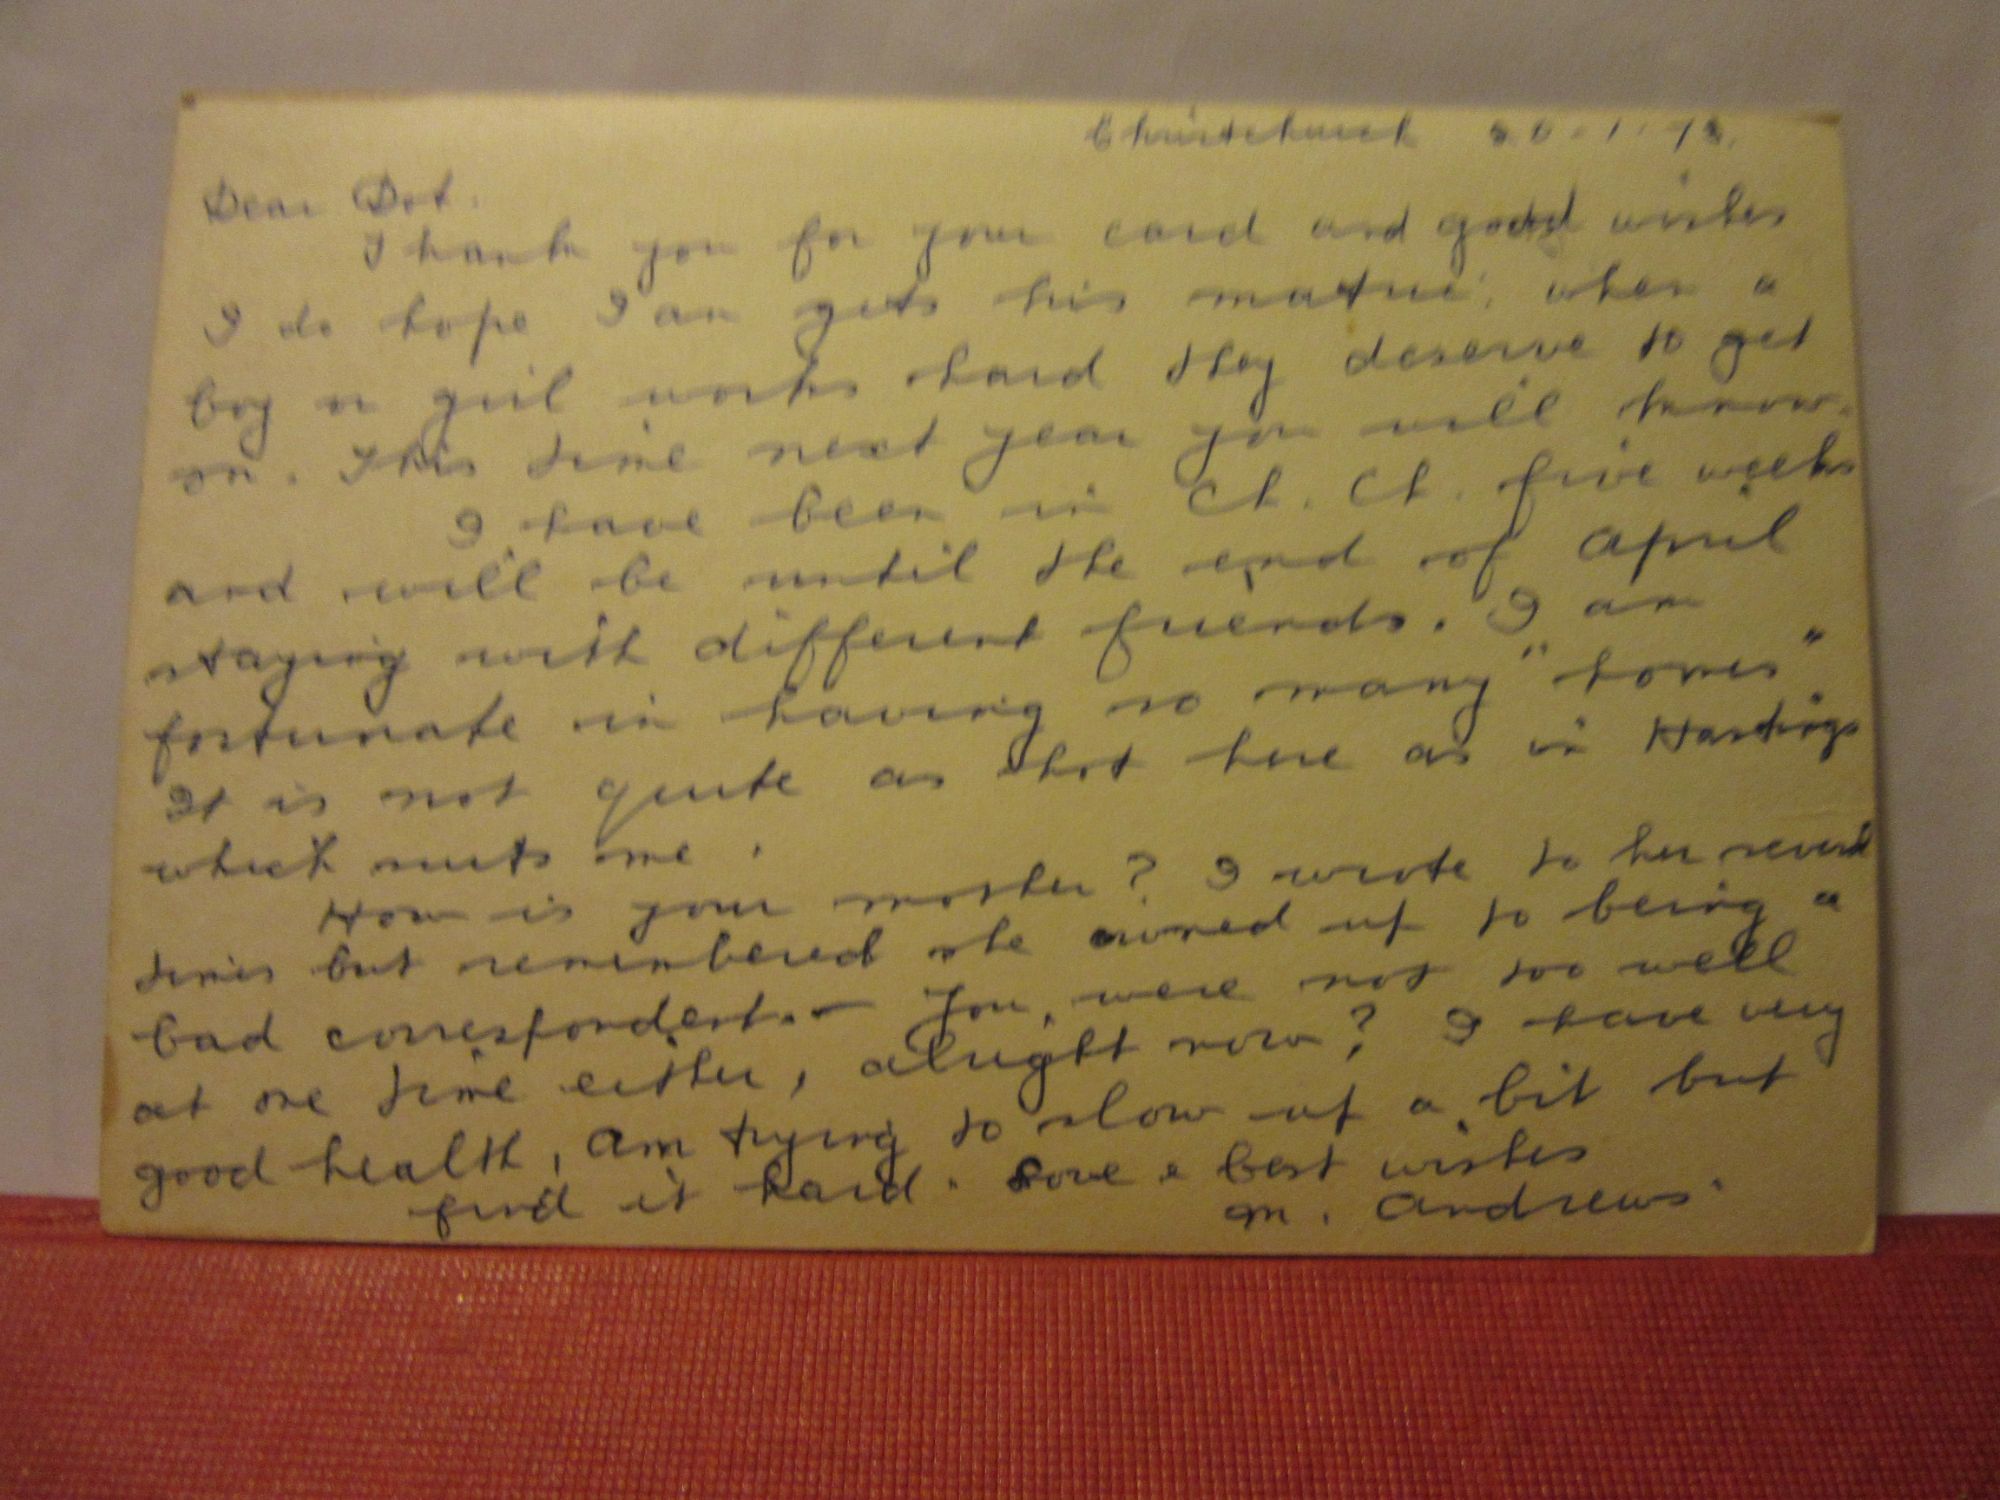 Christchurch
Dear Dot.
Thank you for your card and good wishes
I do hope Ian gets his matric, when a
boy or girl works hard they deserve to get
on. This time next year you will know.
I have been in Ch. Ch. five weeks
and will be until the end of April
staying with different friends. I am
fortunate in having so many "homes".
It is not quite as hot here as in Hastings
which suits me.
How is your mother? I wrote to her several
times but remembered she owned up to being a
bad correspondent. — You were not too well
at one time either, alright now? I have very
good health, am trying to slow up a bit but
find it hard. Love & best wishes
M. Andrews.